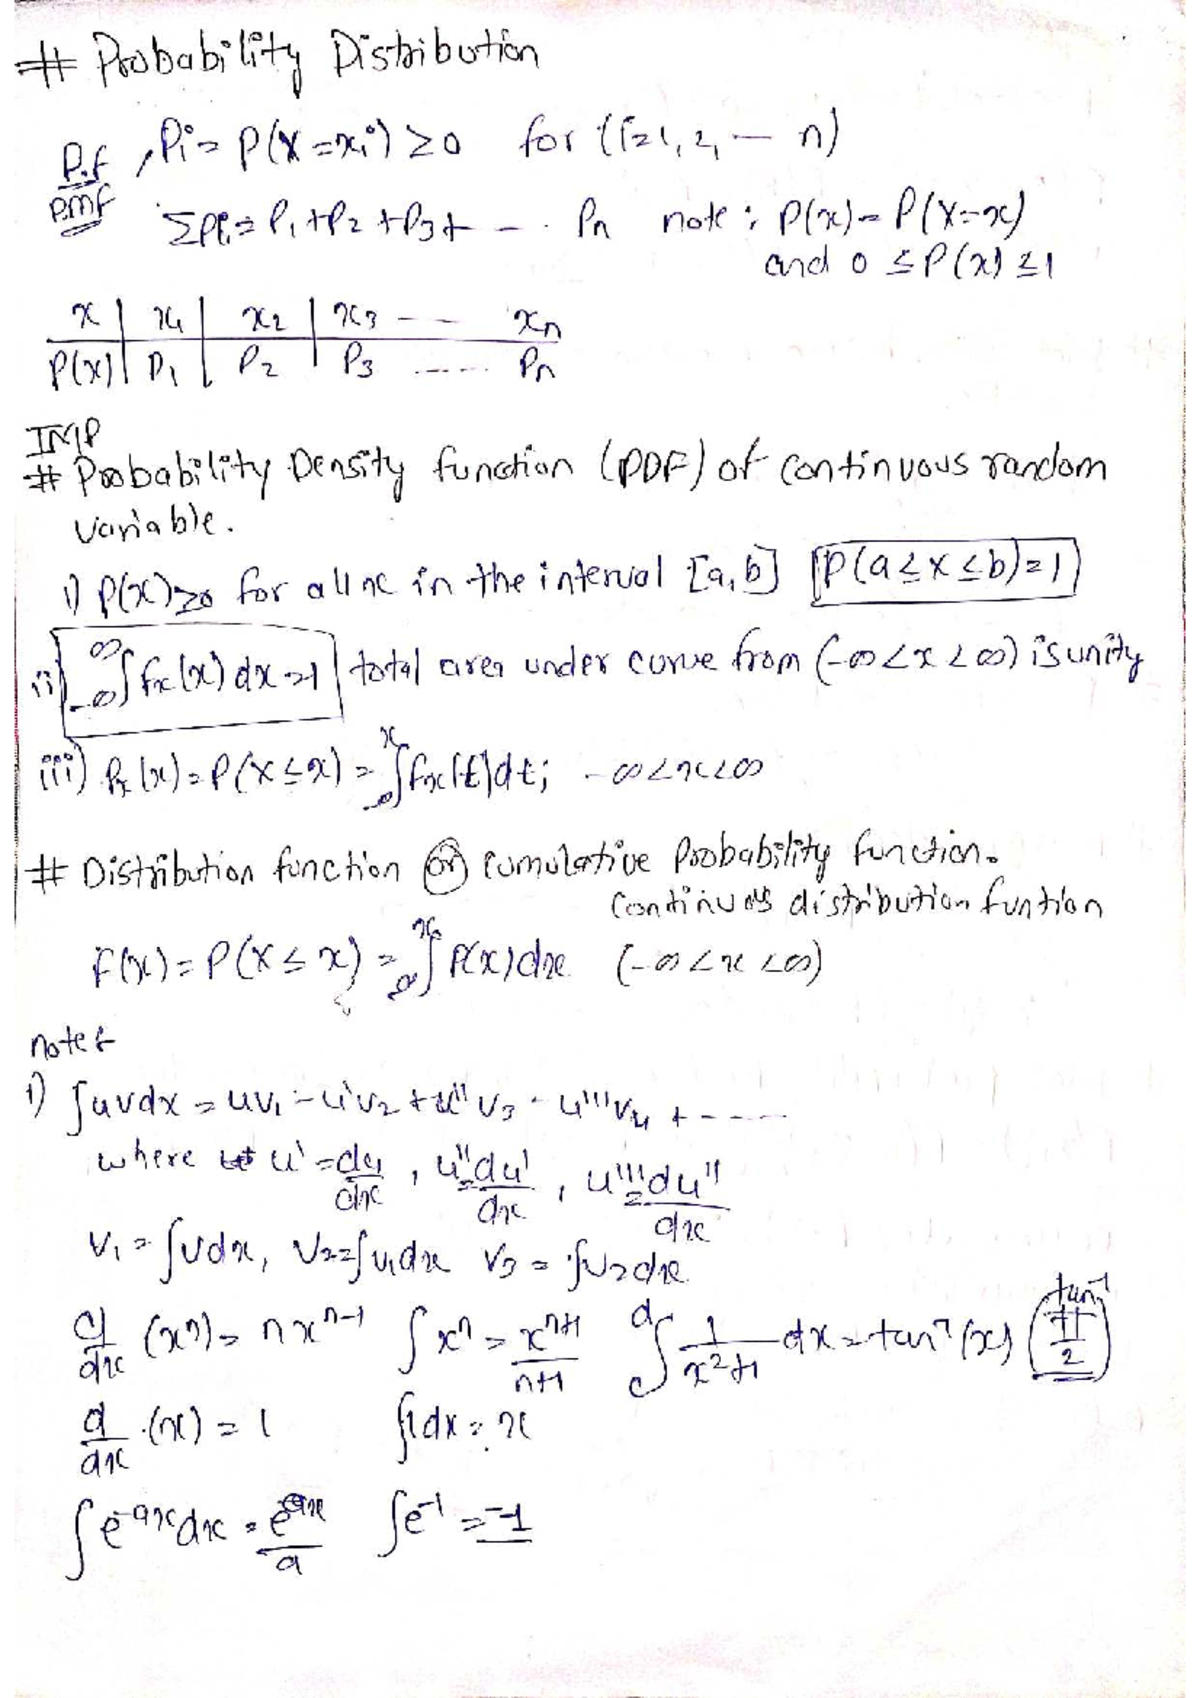 # Probability Distribution
P.f , Pi = P(X = xi) ≥ 0 for (i=1, 2, — n)
P.m.f ΣPi = P1 + P2 + P3 + – . . Pn note : P(x) = P(X=x)
and 0 ≤ P(x) ≤ 1
x | x1 | x2 | x3 ---- xn
P(x) | P1 | P2 | P3 ...... Pn
IMP
# Probability Density function (PDF) of continuous random
variable.
i) P(x)≥0 for all x in the interval [a, b] P(a ≤ x ≤ b) = 1
ii) -∞∫∞ fx(x) dx = 1 total area under curve from (-∞ < x < ∞) is unity
iii) Fx(x) = P(X ≤ x) = -∞∫x fx(t)dt; -∞<x<∞
# Distribution function (or) cumulative Probability function.
Continuous distribution funtion
F(x) = P(X ≤ x) = -∞∫x P(x)dx (-∞ < x < ∞)
note :
i) ∫uvdx = uv1 - u'v2 + u''v3 - u'''v4 + - - - -
where u' = du/dx , u'' = du'/dx , u''' = du''/dx
v1 = ∫vdx, v2 = ∫v1dx v3 = ∫v2dx
d/dx (x^n) = nx^n-1 ∫x^n = x^n+1/n+1 ∫ 1/x²+1 dx = tan⁻¹(x) (tan⁻¹ π/2)
d/dx (x) = 1 ∫1dx = x
∫e^-ax dx = e^-ax/a ∫e^-1 = -1